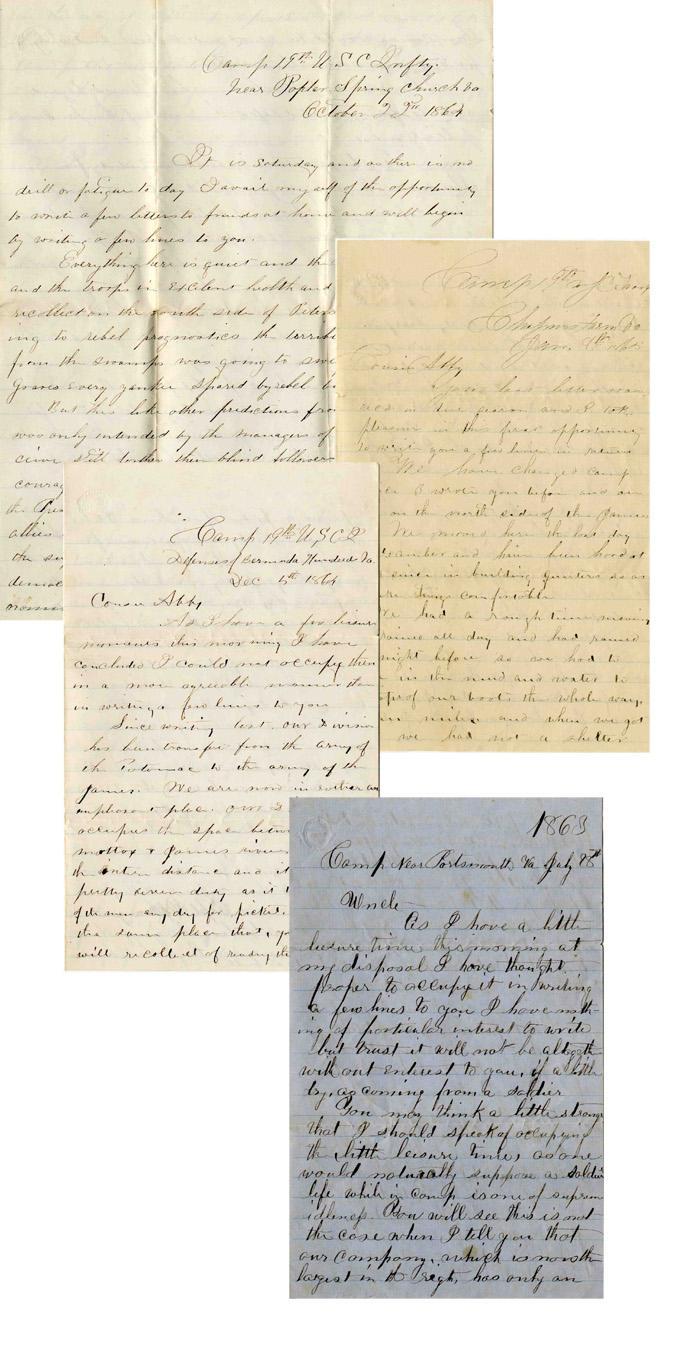 Camp 19th U S C Infty.
Near Popler Spring Church Va
October 22nd 1864
It is Saturday and as there is no
drill or fatigue to day I avail myself of the opportunity
to write a few letters to friends at home and will begin
by writing a few lines to you.
Everything here is quiet and the
and the troops in Excelent health and
recollect on the south side of Peters
ing to rebel prognostics the terrible
from the swamps was going to
graves every yankee spared by rebel
But this like other predictions from
was only intended by the managers of
still further their blind followers
courag
the Pres
allies
the
democ
Camp 19th
Chapins Farm Va
Jan. 9th
Cousin Abby
Your kind letter was
in due season and I take
pleasure in this first opportunity
to write you a few lines in return
We have changed camp
I wrote you before and are
on the north side of the James
We moved here the last day
and have been hard at
since in building quarters so as
things comfortable
had a rough time moving
rained all day and had rained
night before so we had to
in the mud and water to
of our boots the whole way,
miles and when we got
we had not a shelter
Camp 19th U S C I
Defenses of Bermuda Hundred Va.
Dec 5th 1864
Cousin Abby
As I have a few leisure
moments this morning I have
concluded I could not occupy them
in a more agreeable manner than
in writing a few lines to you
Since writing last our Division
has been transfer from the army of
the Potomac to the army of the
James. We are now in rather an
place. Our
occupies the space betwe
mattox & James rivers
the entire distance and it
pretty severe duty as it
of the men any day for picket.
the same place that, yo
will recollect of reading th
1863
Camp Near Portsmouth Va July 28th
Uncle
As I have a little
leisure time this morning at
my disposal I have thought
Proper to occupy it in writing
a few lines to you I have noth-
ing of particular interest to write
but trust it will not be altogeth
without enterest to you, if a little
dry, as coming from a soldier
You may think a little strange
that I should speak of occupying
the little leisure time, as one
would naturally suppose a soldier
life while in camp is one of suprem
idleness. You will see this is not
the case when I tell you that
our company, which is now the
largest in the regt, has only an